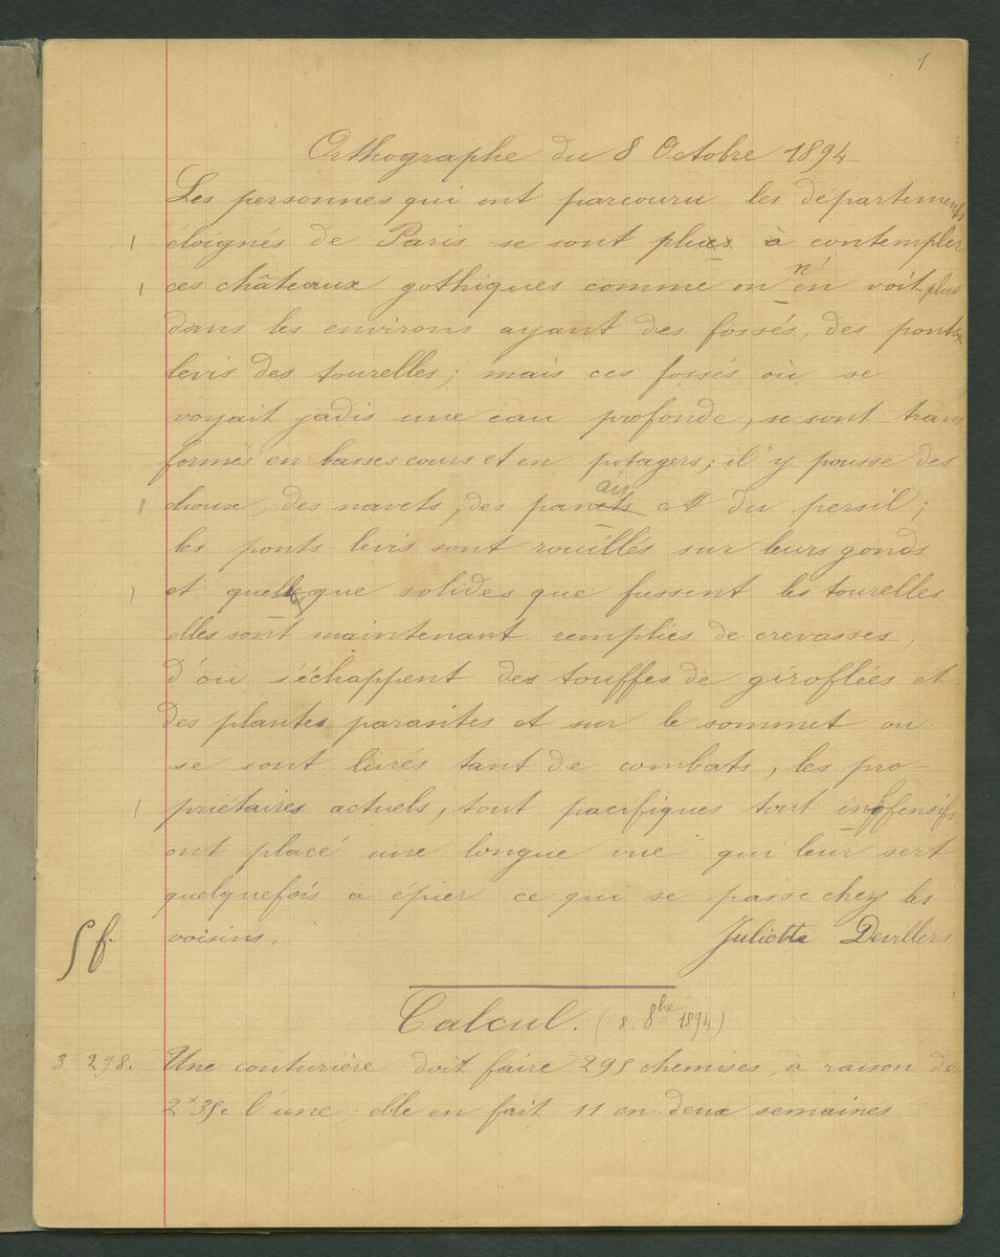 1
Orthographe du 8 Octobre 1894
Les personnes qui ont parcouru les départements
éloignés de Paris se sont plu à contempler
ces châteaux gothiques comme on n'en voit plus
dans les environs ayant des fossés, des ponts
levis des tourelles; mais ces fossés où se
voyait jadis une eau profonde, se sont trans
formés en basses cours et en potagers; il y pousse des
choux, des navets, des panais et du persil;
les ponts levis sont rouillés sur leurs gonds
et quelque solides que fussent les tourelles
elles sont maintenant remplies de crevasses,
d'où s'échappent des touffes de giroflées et
des plantes parasites et sur le sommet où
se sont livrés tant de combats, les pro-
priétaires actuels, tout pacifiques tout inoffensifs
ont placé une longue vue qui leur sert
quelquefois a épier ce qui se passe chez les
voisins.
5 f.
Juliette Devillers
Calcul. (8 8bre 1894)
3 298. Une couturière doit faire 295 chemises, à raison de
2f35c l'une; elle en fait 11 en deux semaines